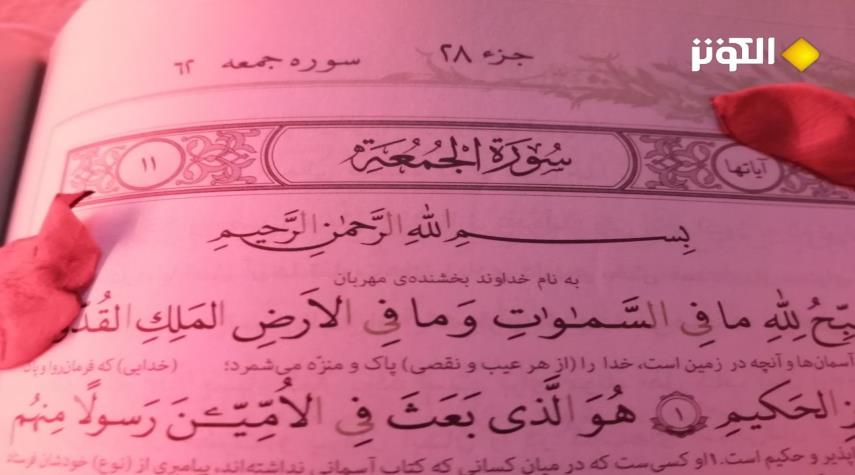 الكوثر
جزء ۲۸ سوره جمعه ۶۲
آیاتها سُورَةُ الْجُمُعَةِ ۱۱
بِسْمِ اللهِ الرَّحمٰنِ الرَّحيمِ
به نام خداوند بخشنده‌ی مهربان
لِلّٰهِ ما فِي السَّمٰوٰتِ وَما فِي الاَرضِ المَلِكِ
آسمان‌ها و آنچه در زمین است، خدا را (از هر عیب و نقصی) پاک و منزّه می‌شمرد؛ (خدایی) که فرمان‌روا و پاک
الحَكيمِ ۱ هُوَ الَّذی بَعَثَ فِي الاُمِّيّـٖنَ رَسولًا مِنهُم
و حکیم است. ۱ او کسی‌ست که در میان کسانی که کتاب آسمانی نداشته‌اند، پیامبری از (نوع) خودشان